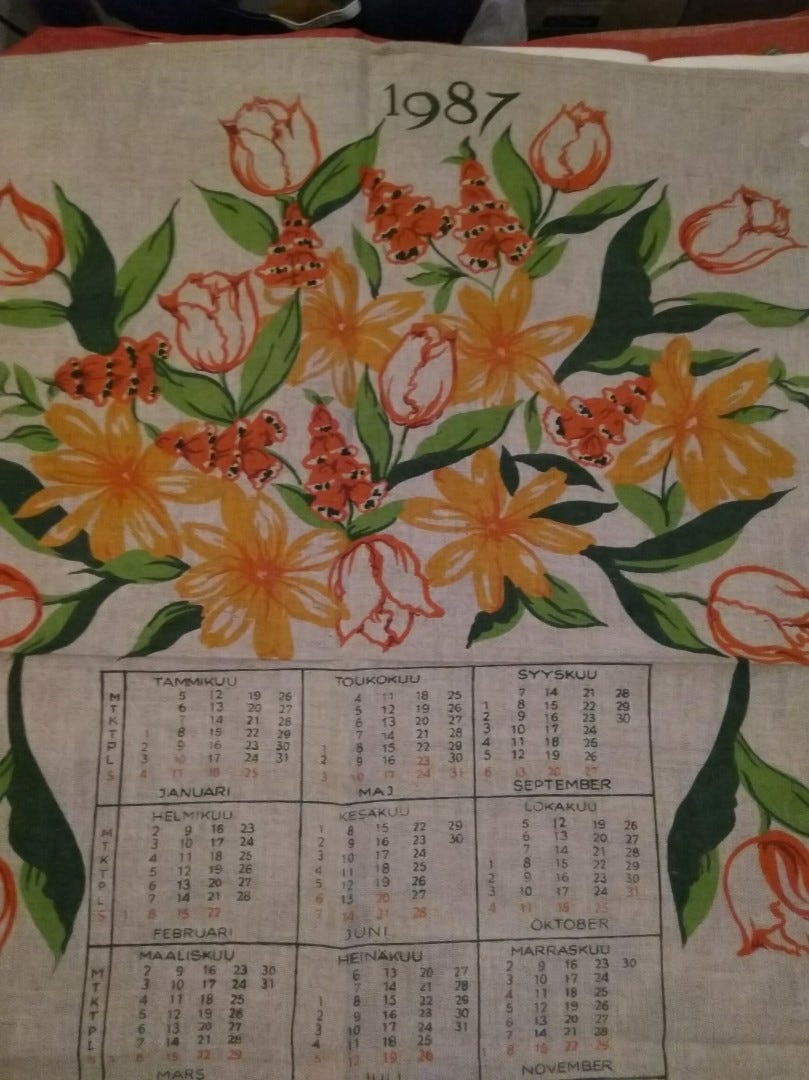 1987
TAMMIKUU
M 5 12 19 26
T 6 13 20 27
K 7 14 21 28
T 1 8 15 22 29
P 2 9 16 23 30
L 3 10 17 24 31
S 4 11 18 25
JANUARI
TOUKOKUU
4 11 18 25
5 12 19 26
6 13 20 27
7 14 21 28
1 8 15 22 29
2 9 16 23 30
3 10 17 24 31
MAJ
SYYSKUU
7 14 21 28
1 8 15 22 29
2 9 16 23 30
3 10 17 24
4 11 18 25
5 12 19 26
6 13 20 27
SEPTEMBER
HELMIKUU
M 2 9 16 23
T 3 10 17 24
K 4 11 18 25
T 5 12 19 26
P 6 13 20 27
L 7 14 21 28
S 1 8 15 22
FEBRUARI
KESÄKUU
1 8 15 22 29
2 9 16 23 30
3 10 17 24
4 11 18 25
5 12 19 26
6 13 20 27
7 14 21 28
JUNI
LOKAKUU
5 12 19 26
6 13 20 27
7 14 21 28
1 8 15 22 29
2 9 16 23 30
3 10 17 24 31
4 11 18 25
OKTOBER
MAALISKUU
M 2 9 16 23 30
T 3 10 17 24 31
K 4 11 18 25
T 5 12 19 26
P 6 13 20 27
L 7 14 21 28
S 1 8 15 22 29
MARS
HEINÄKUU
6 13 20 27
7 14 21 28
1 8 15 22 29
2 9 16 23 30
3 10 17 24 31
4 11 18 25
5 12 19 26
JULI
MARRASKUU
2 9 16 23 30
3 10 17 24
4 11 18 25
5 12 19 26
6 13 20 27
7 14 21 28
1 8 15 22 29
NOVEMBER